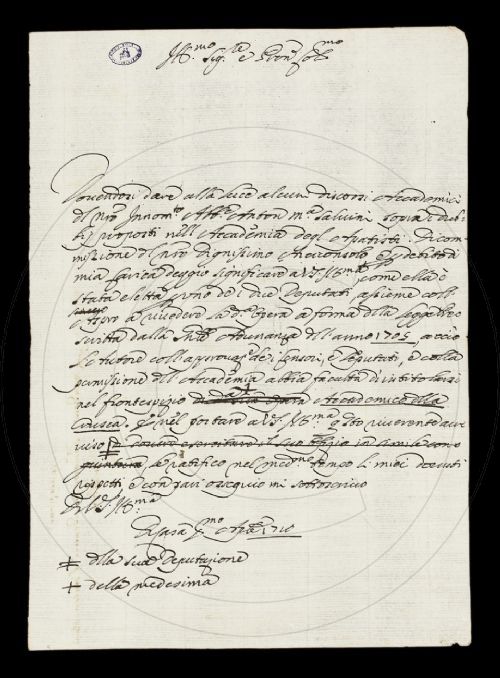 Ill.mo Sig.re e Pron Col.mo
Dovendosi dare alla luce alcuni discorsi Accademici
del nro Innom.to Ab.e Anton M.a Salvini sopra i dub-
bj proposti nell'Accademia degl'Apatisti. Di com-
missione del nro Dignissimo Arciconsolo e p debito di
mia carica deggio significare a V.S. Ill.ma come ella è
stata eletta p uno de i due Deputati assieme coll
a rivedere la d.a opera a forma della legge de-
scritta dalla Adunanza dell anno 1705, acciò
l'Autore coll approvaz.e de i Censori, e Deputati, e colla
permissione dell Accademia abbia facultà di intitolarsi
nel frontespizio + Accademico della
Crusca. Io nel portare a V.S. Ill.ma q.sto riverente avv
viso ‡ il suo in
le ratifico nel med.mo tempo li miei dovuti
rispetti e con pari ossequio mi sottoscrivo
Di V.S. Ill.ma
Di Casa p.mo Ap.le 1710
‡ della sua Deputazione
+ della medesima